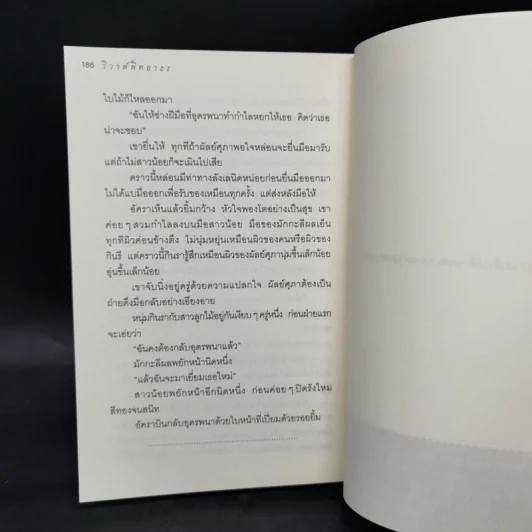 186 วิวาห์พิทยาธร
ใบไม้ก็ไหลออกมา
“ฉันให้ช่างฝีมือที่อุดรพนาทำกำไลหยกให้เธอ คิดว่าเธอ
น่าจะชอบ”
เขายื่นให้ ทุกทีถ้าผัลย์ศุภาพอใจหล่อนจะยื่นมือมารับ
แต่ถ้าไม่สาวน้อยก็จะเมินไปเสีย
คราวนี้หล่อนมีท่าทางลังเลนิดหน่อยก่อนยื่นมือออกมา
ไม่ได้แบมือออกเพื่อรับของเหมือนทุกครั้ง แต่ส่งหลังมือให้
อัคราเห็นแล้วยิ้มกว้าง หัวใจพองโตอย่างเป็นสุข เขา
ค่อยๆ สวมกำไลลงบนมือสาวน้อย มือของมักกะลีผลเย็น
ทุกทีผิวค่อนข้างตึง ไม่นุ่มหยุ่นเหมือนผิวของคนหรือผิวของ
กินรี แต่คราวนี้กินรารู้สึกเหมือนผิวของผัลย์ศุภานุ่มขึ้นเล็กน้อย
อุ่นขึ้นเล็กน้อย
เขาจับนิ่งอยู่ครู่ด้วยความแปลกใจ ผัลย์ศุภาต้องเป็น
ฝ่ายดึงมือกลับอย่างเอียงอาย
หนุ่มกินรากับสาวลูกไม้อยู่กันเงียบๆ ครู่หนึ่ง ก่อนฝ่ายแรก
จะเอ่ยว่า
“ฉันคงต้องกลับอุดรพนาแล้ว”
มักกะลีผลพยักหน้านิดหนึ่ง
“แล้วฉันจะมาเยี่ยมเธอใหม่”
สาวน้อยพยักหน้าอีกนิดหนึ่ง ก่อนค่อยๆ ปิดรังไหม
สีทองจนสนิท
อัคราบินกลับอุดรพนาด้วยใบหน้าที่เปี่ยมด้วยรอยยิ้ม